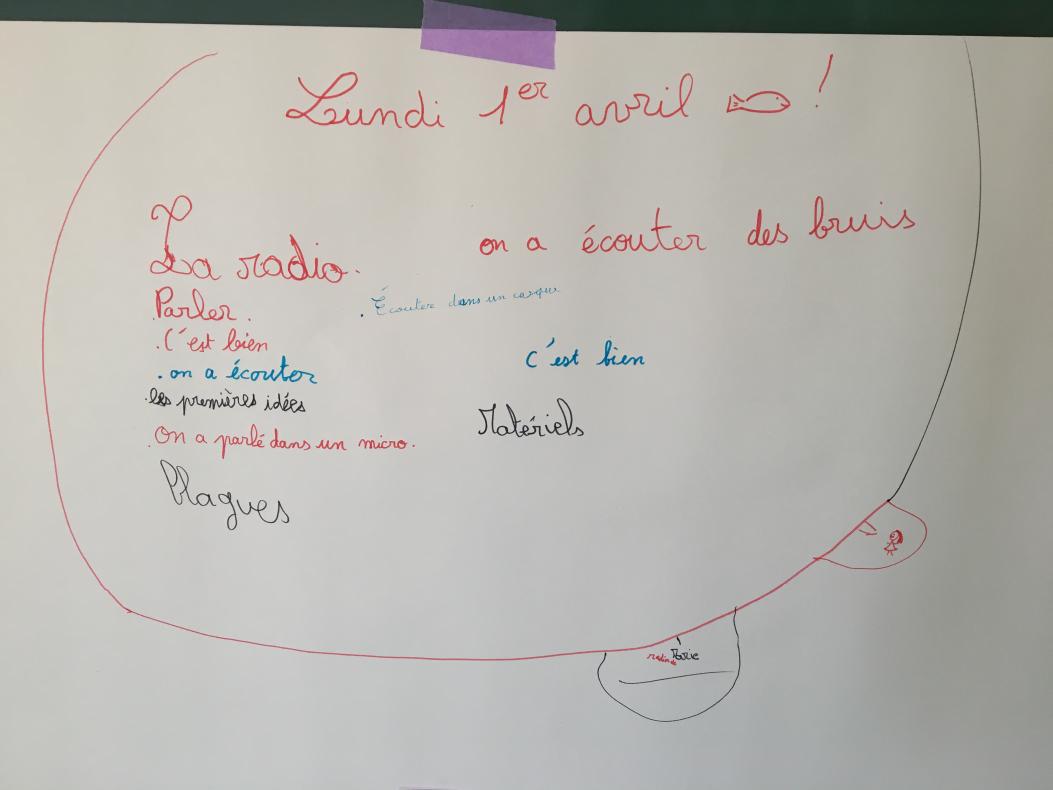 Lundi 1er avril !
La radio.
on a écouter des bruis
Parler.
. Écouter dans un casque
. C'est bien
. on a écouter
c'est bien
. les premières idées
Matériels
. On a parlé dans un micro.
Blagues
Marie